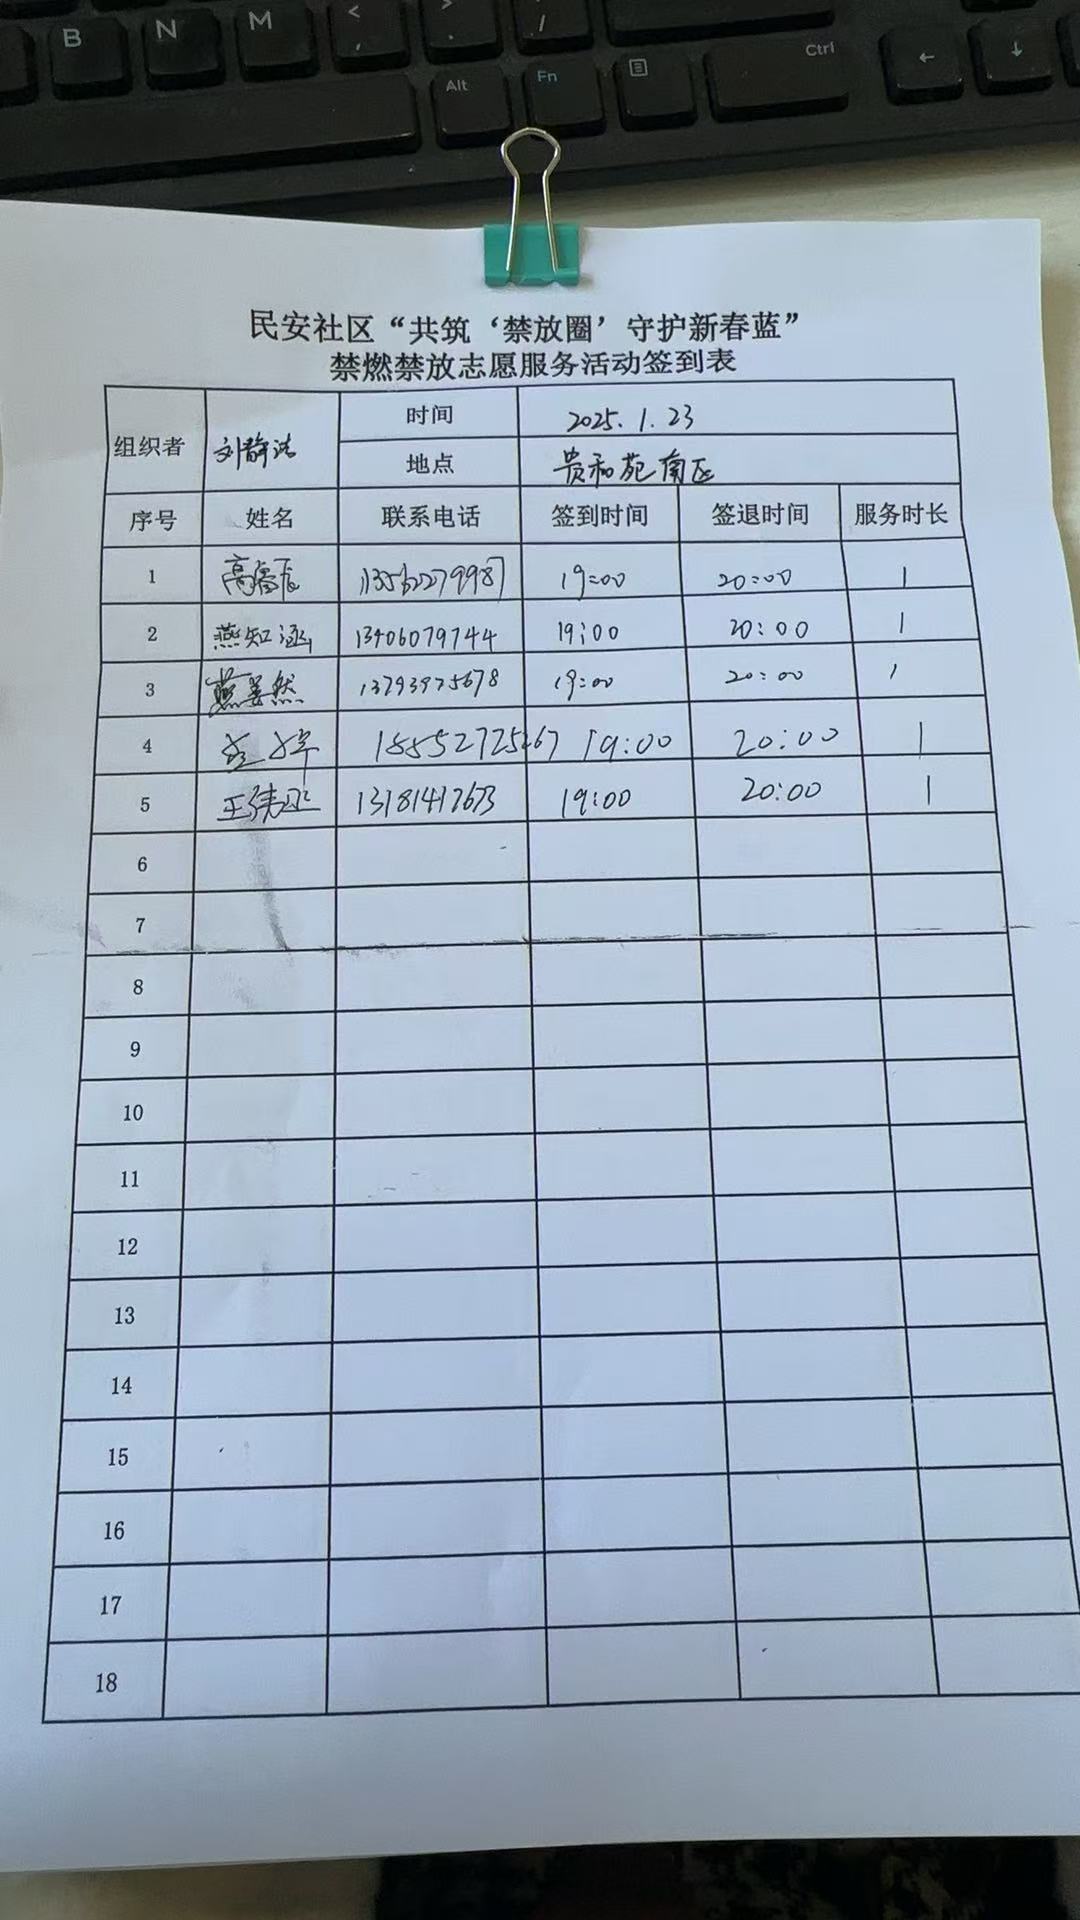 B N M < , > . / Ctrl ← ↓
Alt Fn
民安社区“共筑‘禁放圈’守护新春蓝”
禁燃禁放志愿服务活动签到表
组织者 刘静洁 时间 2025.1.23
地点 贵和苑南区
序号 姓名 联系电话 签到时间 签退时间 服务时长
1 19:00 20:00 1
2 燕知涵 13406079744 19:00 20:00 1
3 13793975678 19:00 20:00 1
4 19:00 20:00 1
5 13181417673 19:00 20:00 1
6
7
8
9
10
11
12
13
14
15
16
17
18